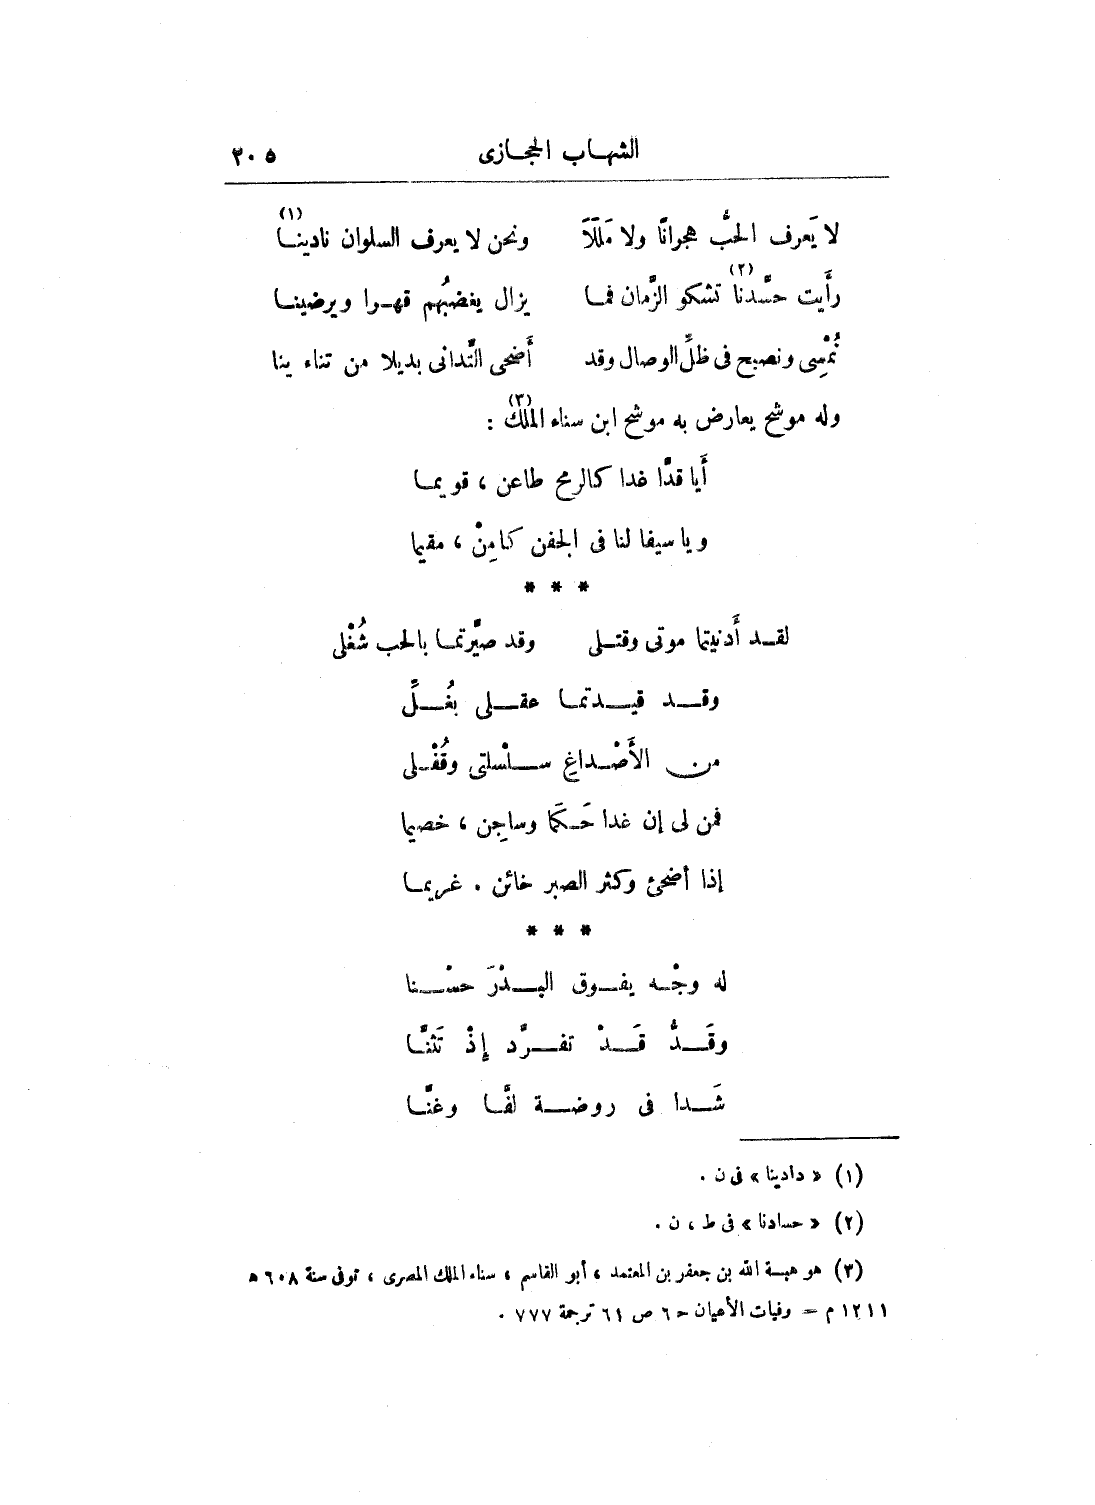 الشهاب الحجازى ٢٠٥
لا يَعرف الحبُّ هجرانًا ولا مَلَلَا ونحن لا يعرف السلوان نادينا (١)
رأَيت حسَّدنا (٢) تشكو الزَّمان فما يزال يغضبُهم قهرا ويرضينا
نُمْسِى ونصبح فى ظلِّ الوصال وقد أَضحى التَّدانى بديلا من تناء ينا
وله موشح يعارض به موشح ابن سناء المُلك (٣) :
أَيا قدًّا غدا كالرمح طاعن ، قويما
ويا سيفا لنا فى الجفن كامِنْ ، مقيما
* * *
لقد أَدنيتما موتى وقتلى وقد صيَّرتما بالحب شُغْلى
وقد قيدتما عقلى بغُلِّ
من الأَصْداغِ سلْسلتى وقُفْلى
فمن لى إن غدا حَكَما وساجِن ، خصيما
إذا أضحىْ وكثر الصبر خائن . غريما
* * *
له وجْه يفوق البدْرَ حسْنا
وقَدُّ قَدْ تفرَّد إِذْ تَثنَّا
شَدا فى روضة لفَّا وغنَّا
(١) « دادينا » فى ن .
(٢) « حسادنا » فى ط ، ن .
(٣) هو هبة الله بن جعفر بن المعتمد ، أبو القاسم ، سناء الملك المصرى ، توفى سنة ٦٠٨ ه
١٢١١ م = وفيات الأعيان ح ٦ ص ٦١ ترجمة ٧٧٧ .